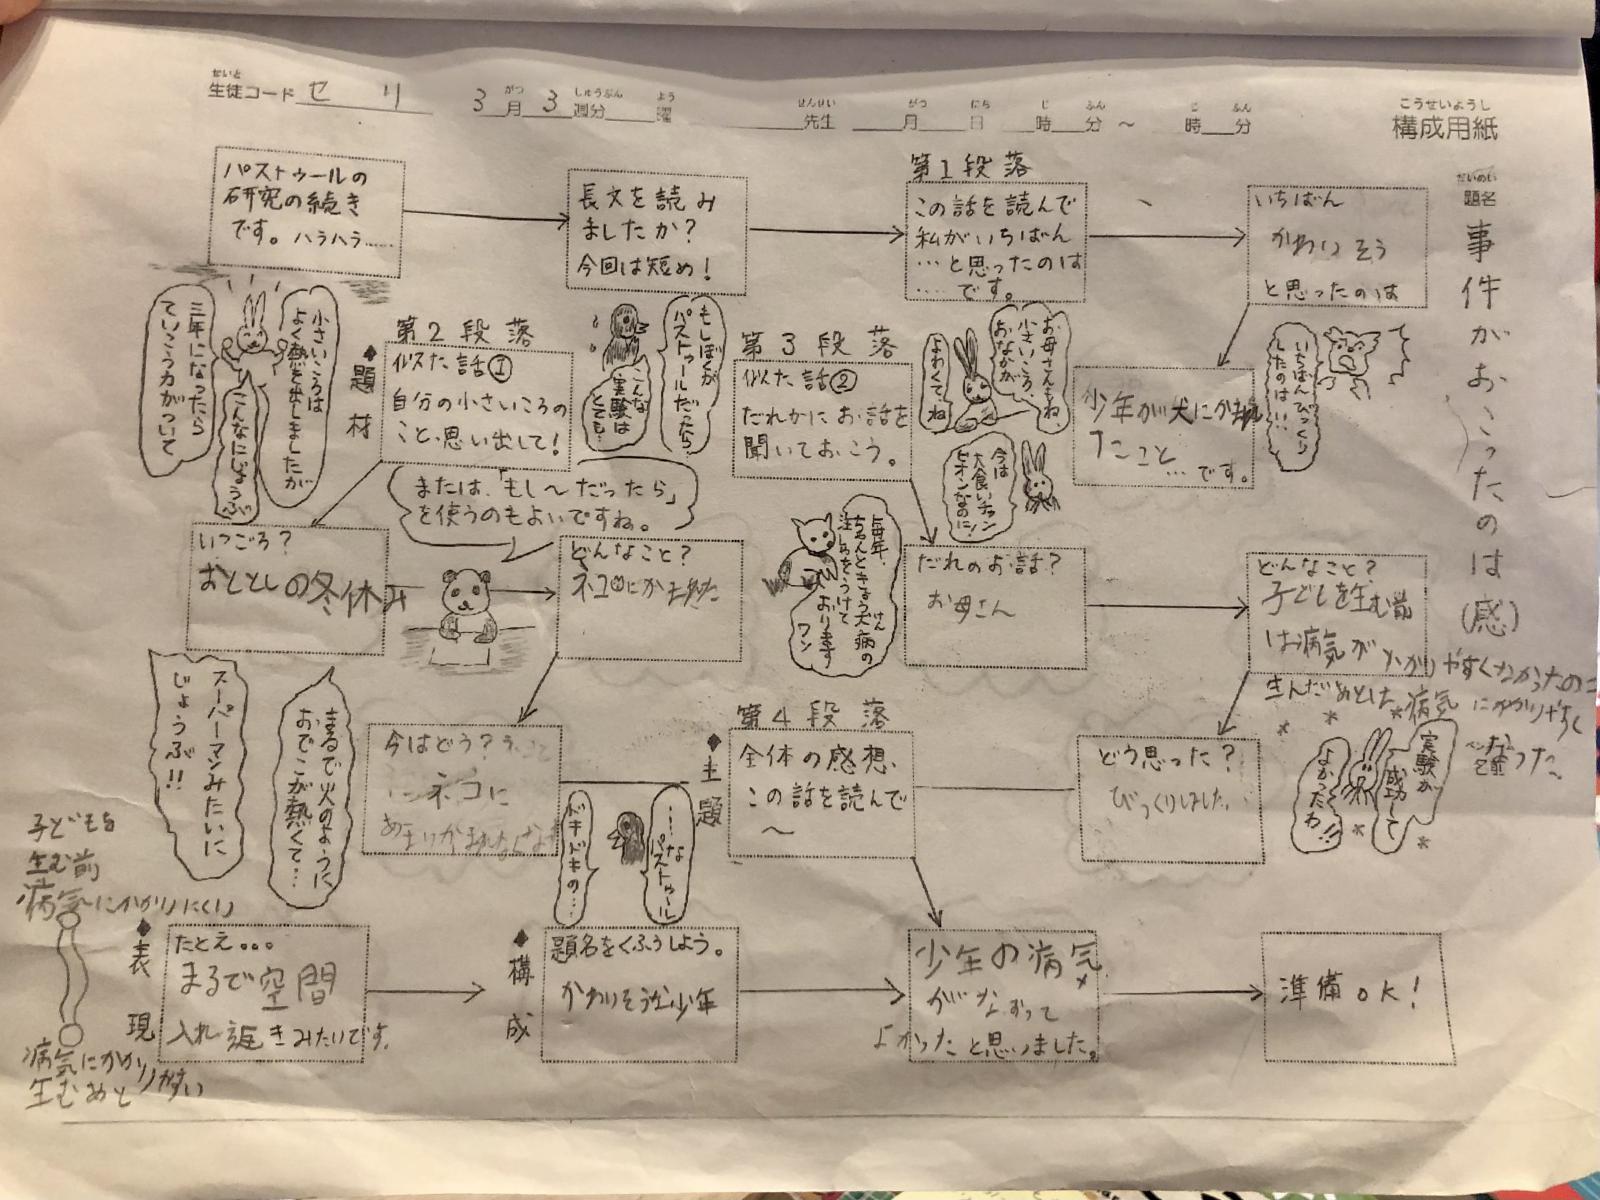 せいと
生徒コード セリ
3月3週分 曜
がつ しゅうぶん よう
先生 月 日 時 分 ~ 時 分
せんせい がつ にち じ ふん じ ふん
こうせいようし
構成用紙
だいめい
題名
事件がおこったのは(感)
パストゥールの
研究の続き
です。ハラハラ……
長文を読み
ましたか?
今回は短め!
第1段落
この話を読んで
私がいちばん
…と思ったのは
……です。
いちばん
かわいそう
と思ったのは
いちばんびっくり
したのは…
少年が犬にかまれ
たこと…です。
お母さんもね、
小さいころ、
おなかが
よわくてね
今は
大食いチャン
ピオンなのに!
◆題材
第2段落
似た話①
自分の小さいころの
こと、思い出して!
小さいころは
よく熱を出しましたが
三年になったら
ていこう力がついて
こんなにじょうぶ
もしぼくが
パストゥールだったら
こんな
実験は
とても…
または、「もし~だったら」
を使うのもよいですね。
いつごろ?
おととしの冬休み
どんなこと?
ネコにかまれた
今はどう?
ネコに
第3段落
似た話②
だれかにお話を
聞いておこう。
毎年、
ちゃんときょう犬病の
けん
注しゃをうけて
おります
ワン
だれのお話?
お母さん
どんなこと?
子どもを生む前
は病気が かかりやすくなかったのに
生んだあとした 病気にかかりやすく
なった。
どう思った?
びっくりしました。
実験が
成功して
よかったわ!!
◆主題
第4段落
全体の感想、
この話を読んで
~
……な
パストゥール
ドキドキの…
少年の病気
がなおって
よかったと思いました。
まるで火のように
おでこが熱くて…
スーパーマンみたいに
じょうぶ!!
子どもを
生む前
病気にかかりにくい
病気にかかりやすい
生むあと
◆表現
たとえ…
まるで空間
入れ返きみたいです。
◆構成
題名をくふうしよう。
かわいそうな少年
準備OK!